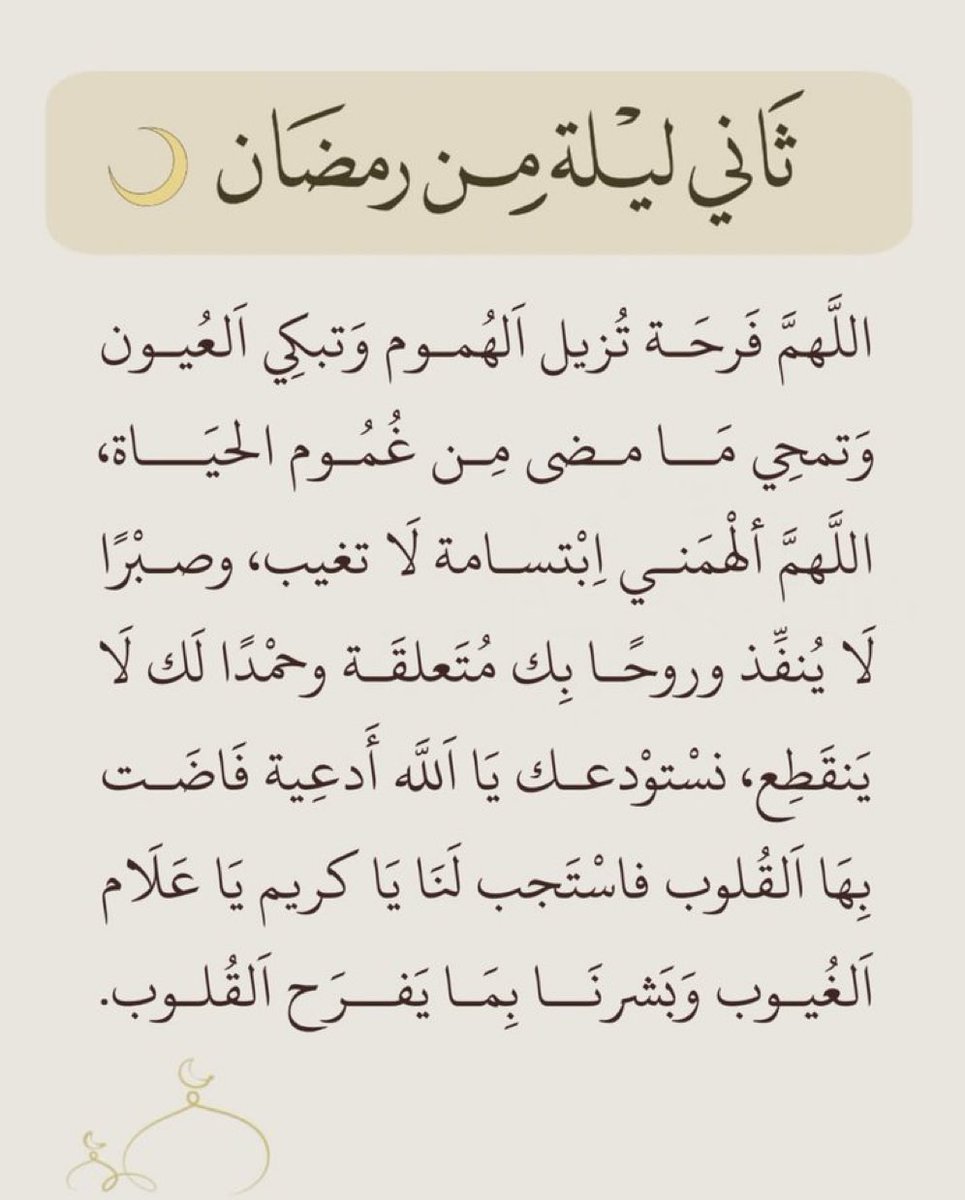 ثَاني ليْلة مِن رمضَان
اللَّهمَّ فَرحَة تُزيل اَلهُموم وَتبكِي اَلعُيون
وَتمحِي مَا مضى مِن غُمُوم الحيَاة،
اللَّهمَّ ألْهمَني اِبْتسامة لَا تغيب، وصبْرًا
لَا يُنفِّذ وروحًا بِك مُتَعلقَة وحمْدًا لَك لَا
يَنقَطِع، نسْتوْدعك يَا اَللَّه أَدعِية فَاضَت
بِهَا اَلقُلوب فاسْتَجب لَنَا يَا كريم يَا عَلَام
اَلغُيوب وَبَشرنَا بِمَا يَفرَح اَلقُلوب.